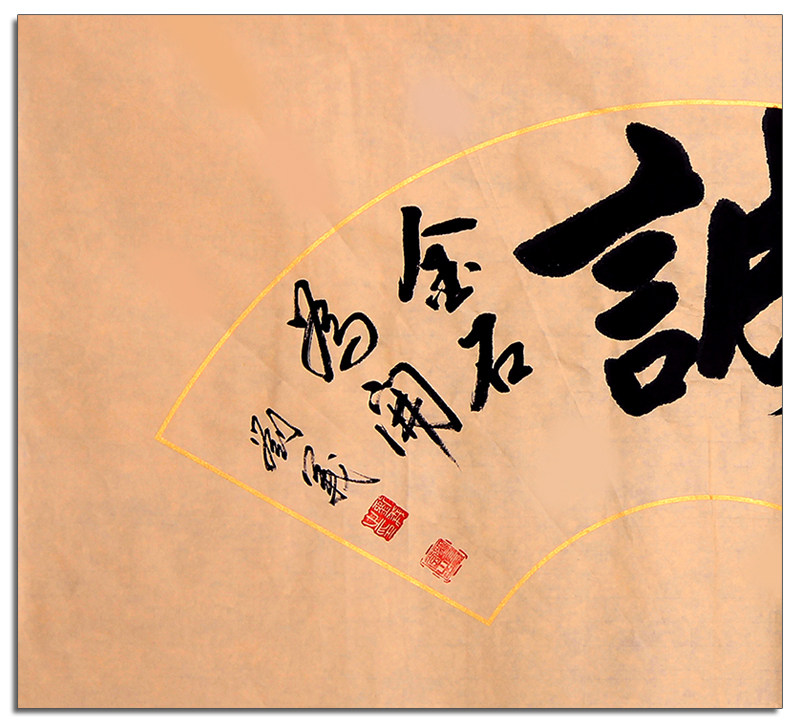 誠
金石
為開
劉